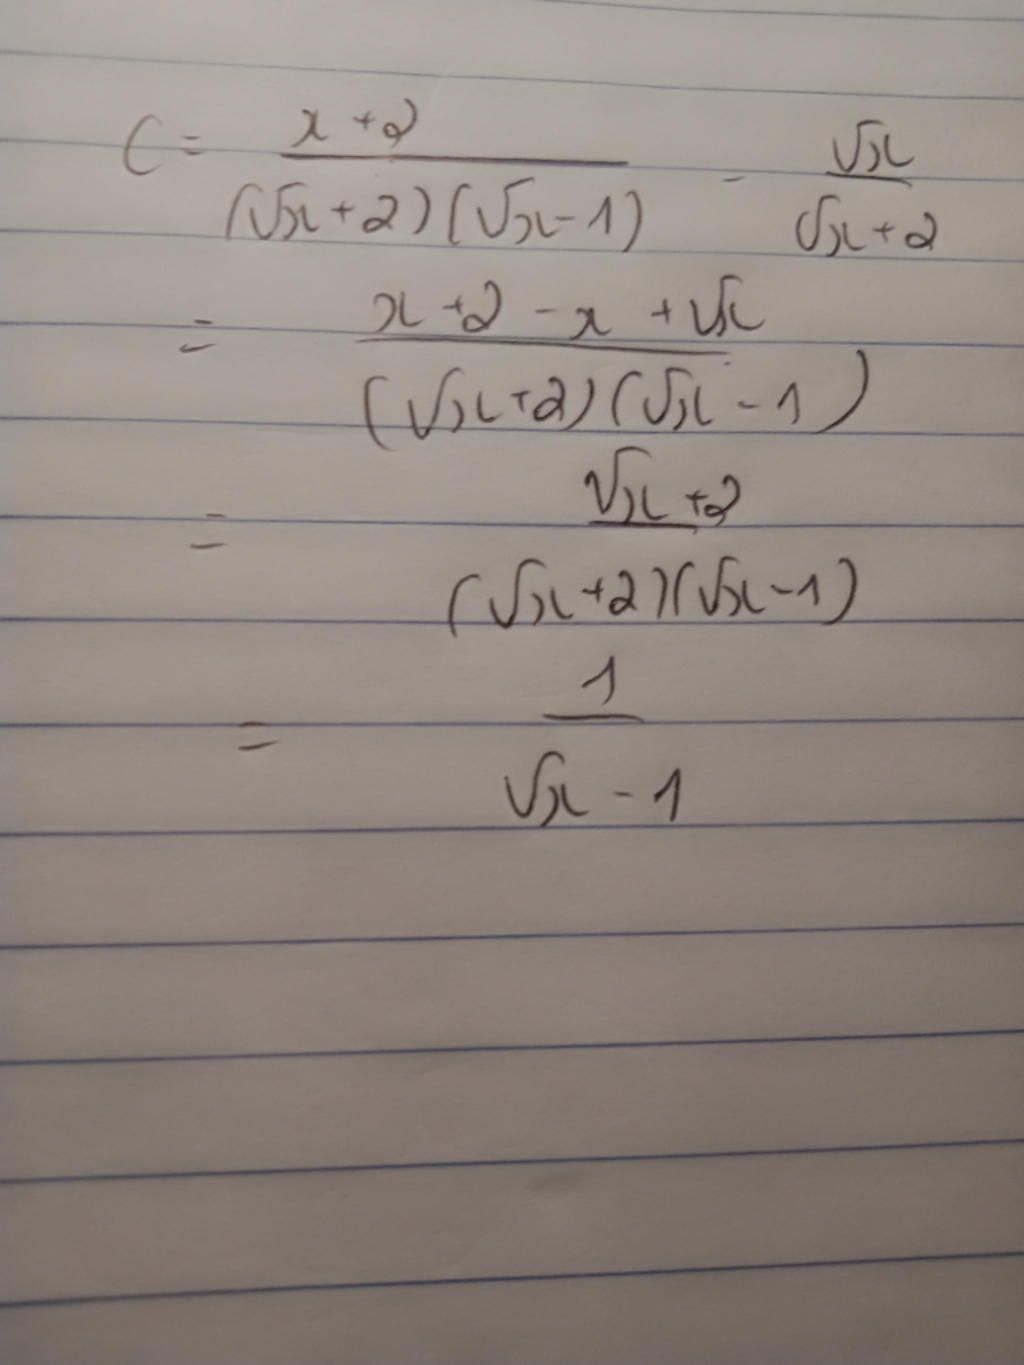 C = \frac{x+2}{(\sqrt{x}+2)(\sqrt{x}-1)} - \frac{\sqrt{x}}{\sqrt{x}+2}
= \frac{x+2-x+\sqrt{x}}{(\sqrt{x}+2)(\sqrt{x}-1)}
= \frac{\sqrt{x}+2}{(\sqrt{x}+2)(\sqrt{x}-1)}
= \frac{1}{\sqrt{x}-1}